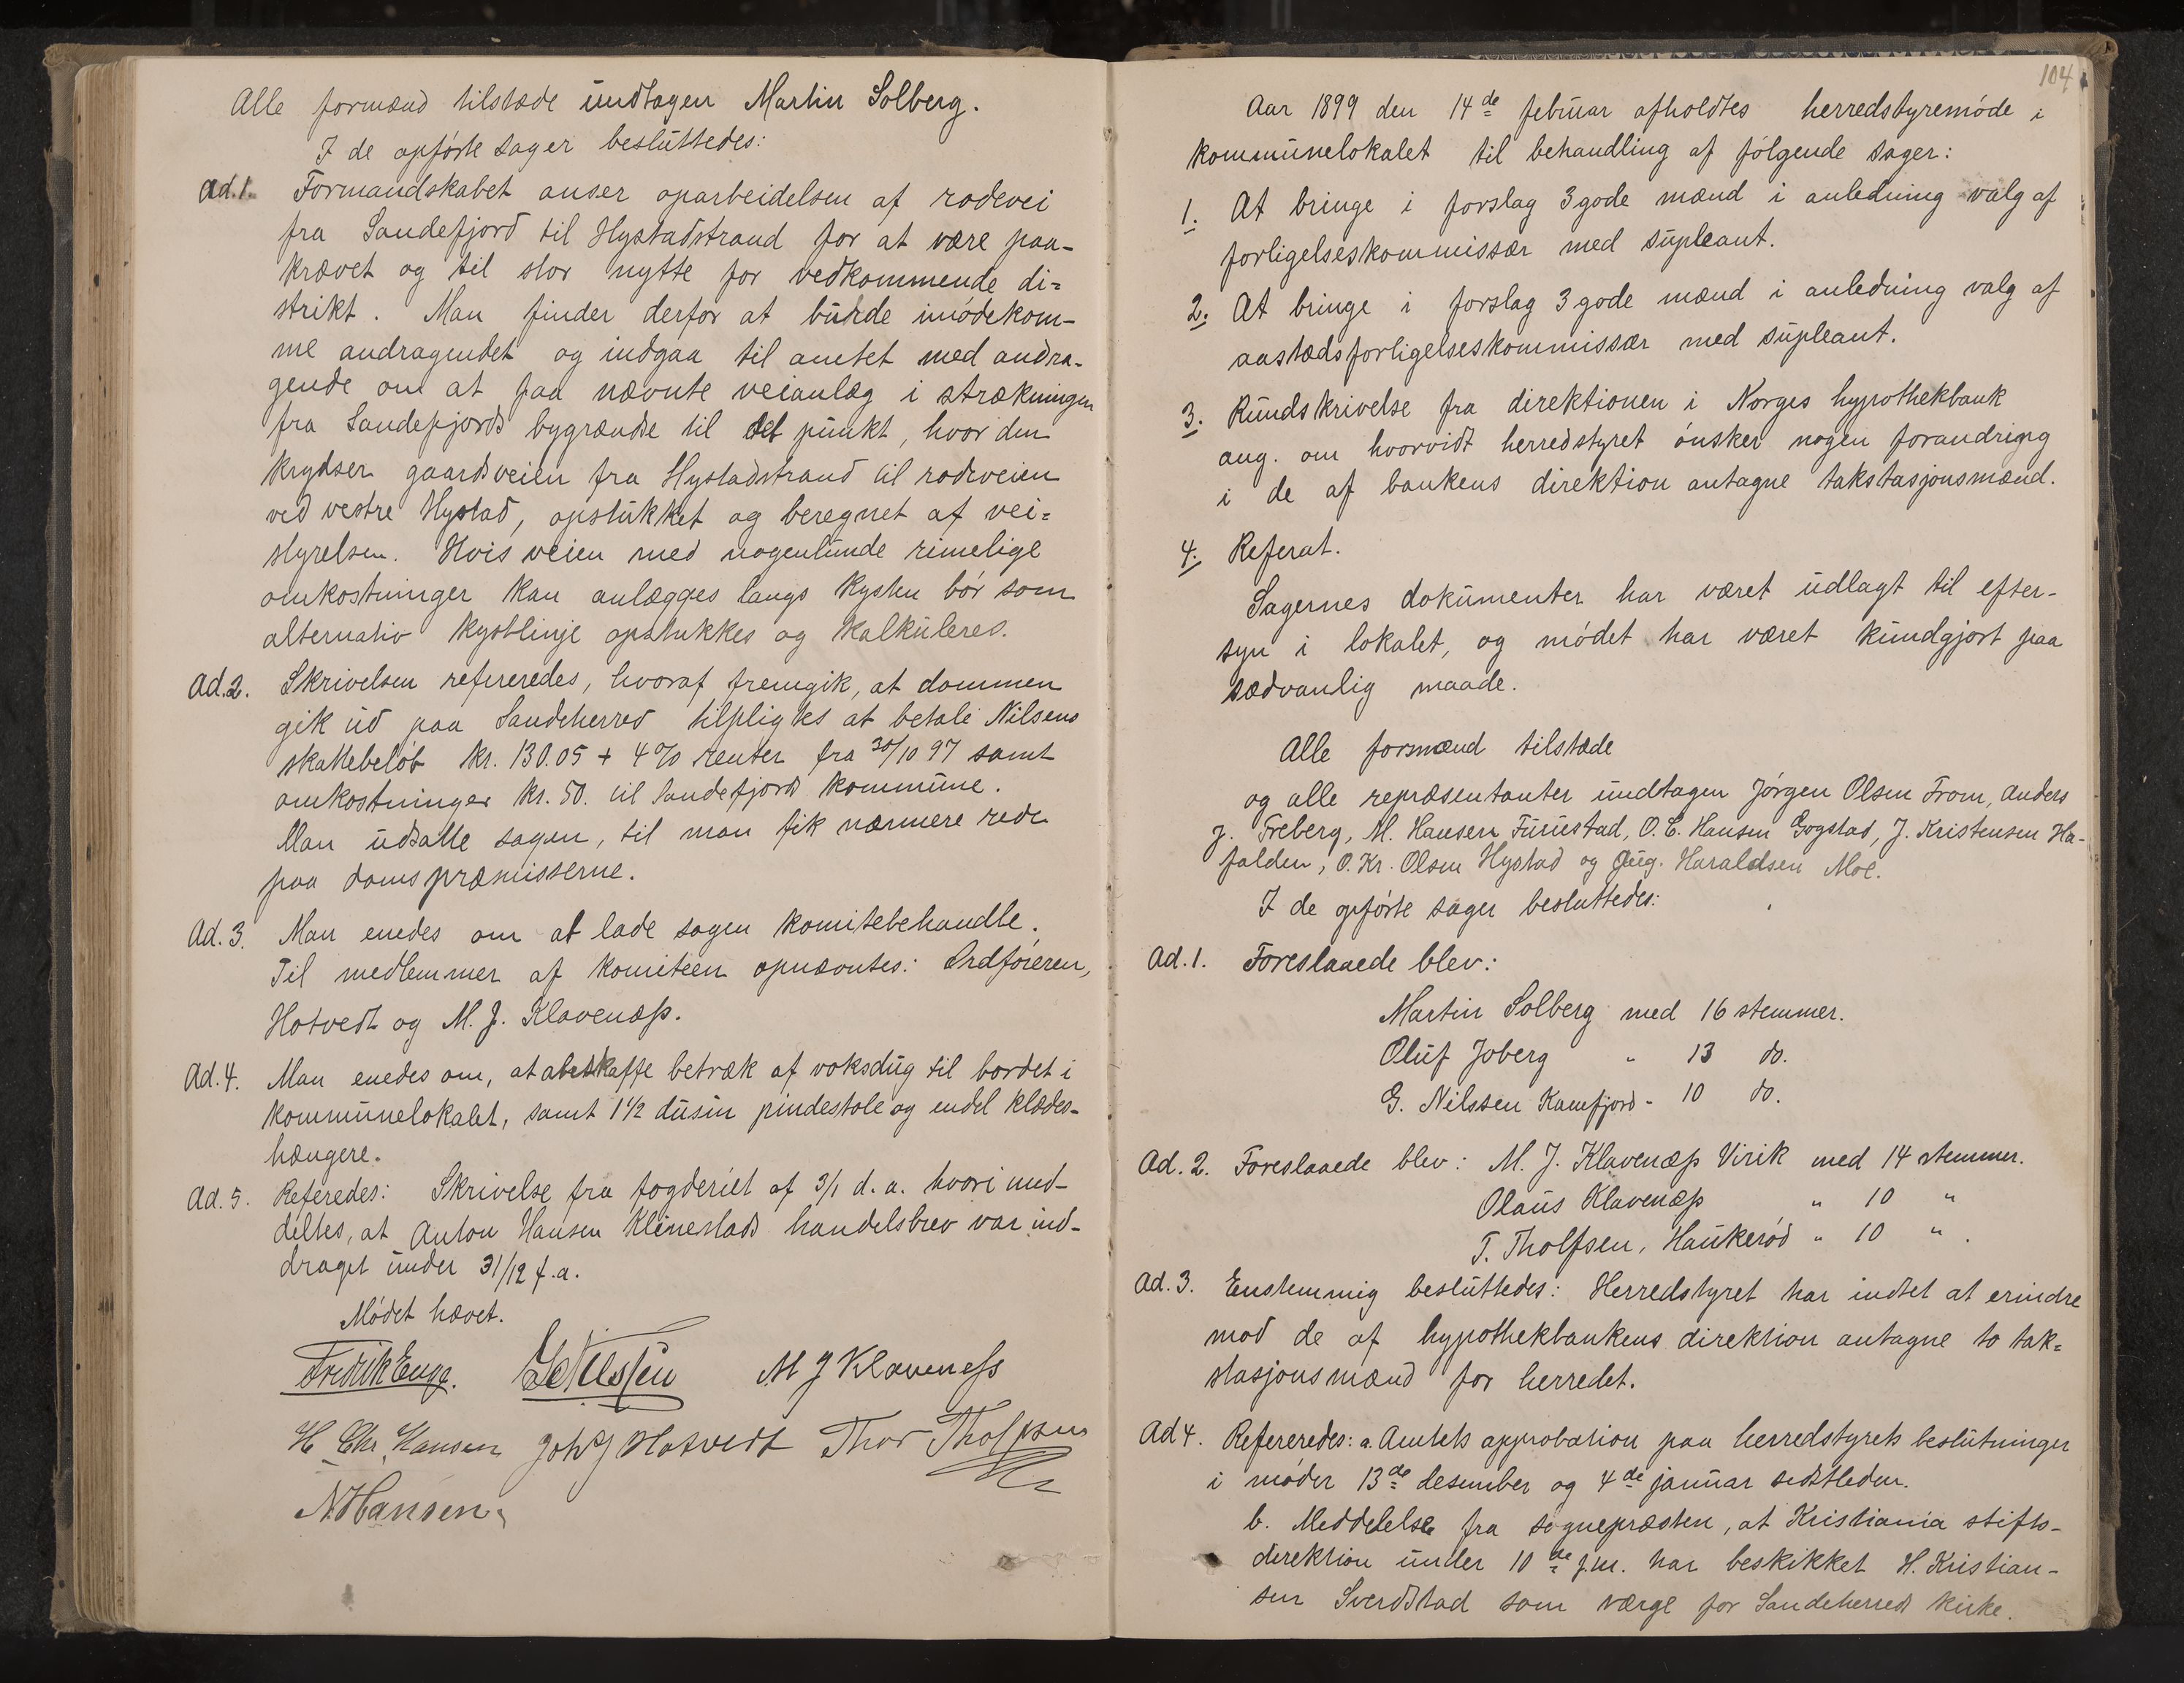 Alle formænd tilstæde undtagen Martin Solberg.
I de opførte sager besluttedes:
Ad. 1. Formandskabet anser oparbeidelsen af rodevei
fra Sandefjord til Hystadstrand for at være paa-
krævet og til stor nytte for vedkommende di=
strikt. Man finder derfor at burde imødekom-
me andragendet og indgaa til amtet med andra-
gende om at faa nævnte veianlæg i strækningen
fra Sandefjords bygrændse til det punkt, hvor den
krydser gaardsveien fra Hystadstrand til rodeveien
ved vestre Hystad, opstukket og beregnet af vei=
styrelsen. Hvis veien med nogenlunde rimelige
omkostninger kan anlægges langs kysten bør som
alternativ kystlinje opstukkes og kalkuleres.
Ad. 2. Skrivelsen refereredes, hvoraf fremgik, at dommen
gik ud paa Sandeherred tilpligtes at betale Nilsens
skattebeløb kr. 130.05 + 4% renter fra 30/10 97 samt
omkostninger kr. 50. til Sandefjords kommune.
Man udsatte sagen, til man fik nærmere rede
paa domspræmisserne.
Ad. 3. Man enedes om at lade sagen komitebehandle.
Til medlemmer af komiteen opnævntes: Ordføreren,
Hotvedt og M. J. Klavenæss.
Ad. 4. Man enedes om, at anskaffe betræk af voksdug til bordet i
kommunelokalet, samt 1 1/2 dusin pindestole og endel klædes-
hængere.
Ad. 5. Referedes: Skrivelse fra fogderiet af 3/1 d. a. hvori med-
deltes, at Anton Hansen Klinestads handelsbrev var ind-
draget under 31/12 f. a.
Mødet hævet.
Fredrik Enge. M J Klaveness
H. Chr. Hansen Joh J Hotvedt Thor Tholfsen
N. Hansen
104
Aar 1899 den 14de februar afholdtes herredstyremøde i
kommunelokalet til behandling af følgende sager:
1. At bringe i forslag 3 gode mænd i anledning valg af
forligelseskommissær med supleant.
2. At bringe i forslag 3 gode mænd i anledning valg af
aastædsforligelseskommissær med supleant.
3. Rundskrivelse fra direktionen i Norges hypothekbank
ang. om hvorvidt herredstyret ønsker nogen forandring
i de af bankens direktion antagne takstasjonsmænd.
4. Referat.
Sagernes dokumenter har været udlagt til efter-
syn i lokalet, og mødet har været kundgjort paa
sædvanlig maade.
Alle formænd tilstæde
og alle repræsentanter undtagen Jørgen Olsen From, Anders
J. Freberg, M. Hansen Furustad, O. C. Hansen Gogstad, J. Kristensen Ha-
salden, O. Kr. Olsen Hystad og Aug. Haraldsen Moe.
I de opførte sager besluttedes:
Ad. 1. Foreslaaede blev:
Martin Solberg med 16 stemmer.
Oluf Joberg " 13 do.
G. Nilssen Kamfjord - 10 do.
Ad. 2. Foreslaaede blev: M. J. Klavenæss Virik med 14 stemmer.
Olaus Klavenæss " 10 "
T. Tholfsen, Haukerød " 10 "
Ad. 3. Enstemmig besluttedes: Herredstyret har indtet at erindre
mod de af hypothekbankens direktion antagne to tak=
stasjonsmænd for herredet.
Ad 4. Refereredes: a. Amtets approbation paa herredstyrets beslutninger
i møder 13de desember og 4de januar sidstleden.
b. Meddelelse fra sognepræsten, at Kristiania stifts-
direktion under 10de f.m. har beskikket H. Kristian-
sen Sverdstad som værge for Sandeherreds kirke.